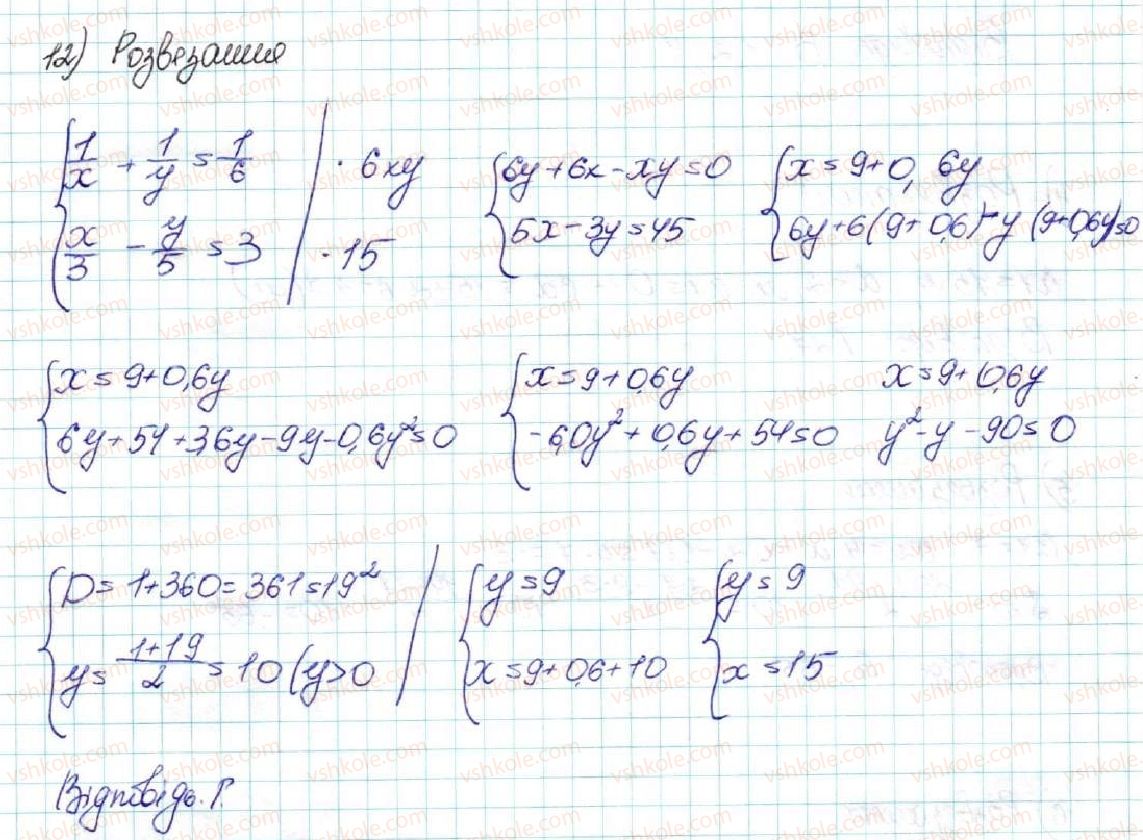 12) Розвезання
1/x + 1/y = 1/6 | · 6xy
x/3 - y/5 = 3 | · 15
6y + 6x - xy = 0
5x - 3y = 45
x = 9 + 0,6y
6y + 6(9 + 0,6) - y(9 + 0,6y) = 0
x = 9 + 0,6y
6y + 54 + 3,6y - 9y - 0,6y² = 0
x = 9 + 0,6y
-6,0y² + 0,6y + 54 = 0
x = 9 + 0,6y
y² - y - 90 = 0
D = 1 + 360 = 361 = 19²
y = (1+19)/2 = 10 (y>0
y = 9
x = 9 + 0,6 + 10
y = 9
x = 15
Відповідь. Г.
vshkole.com